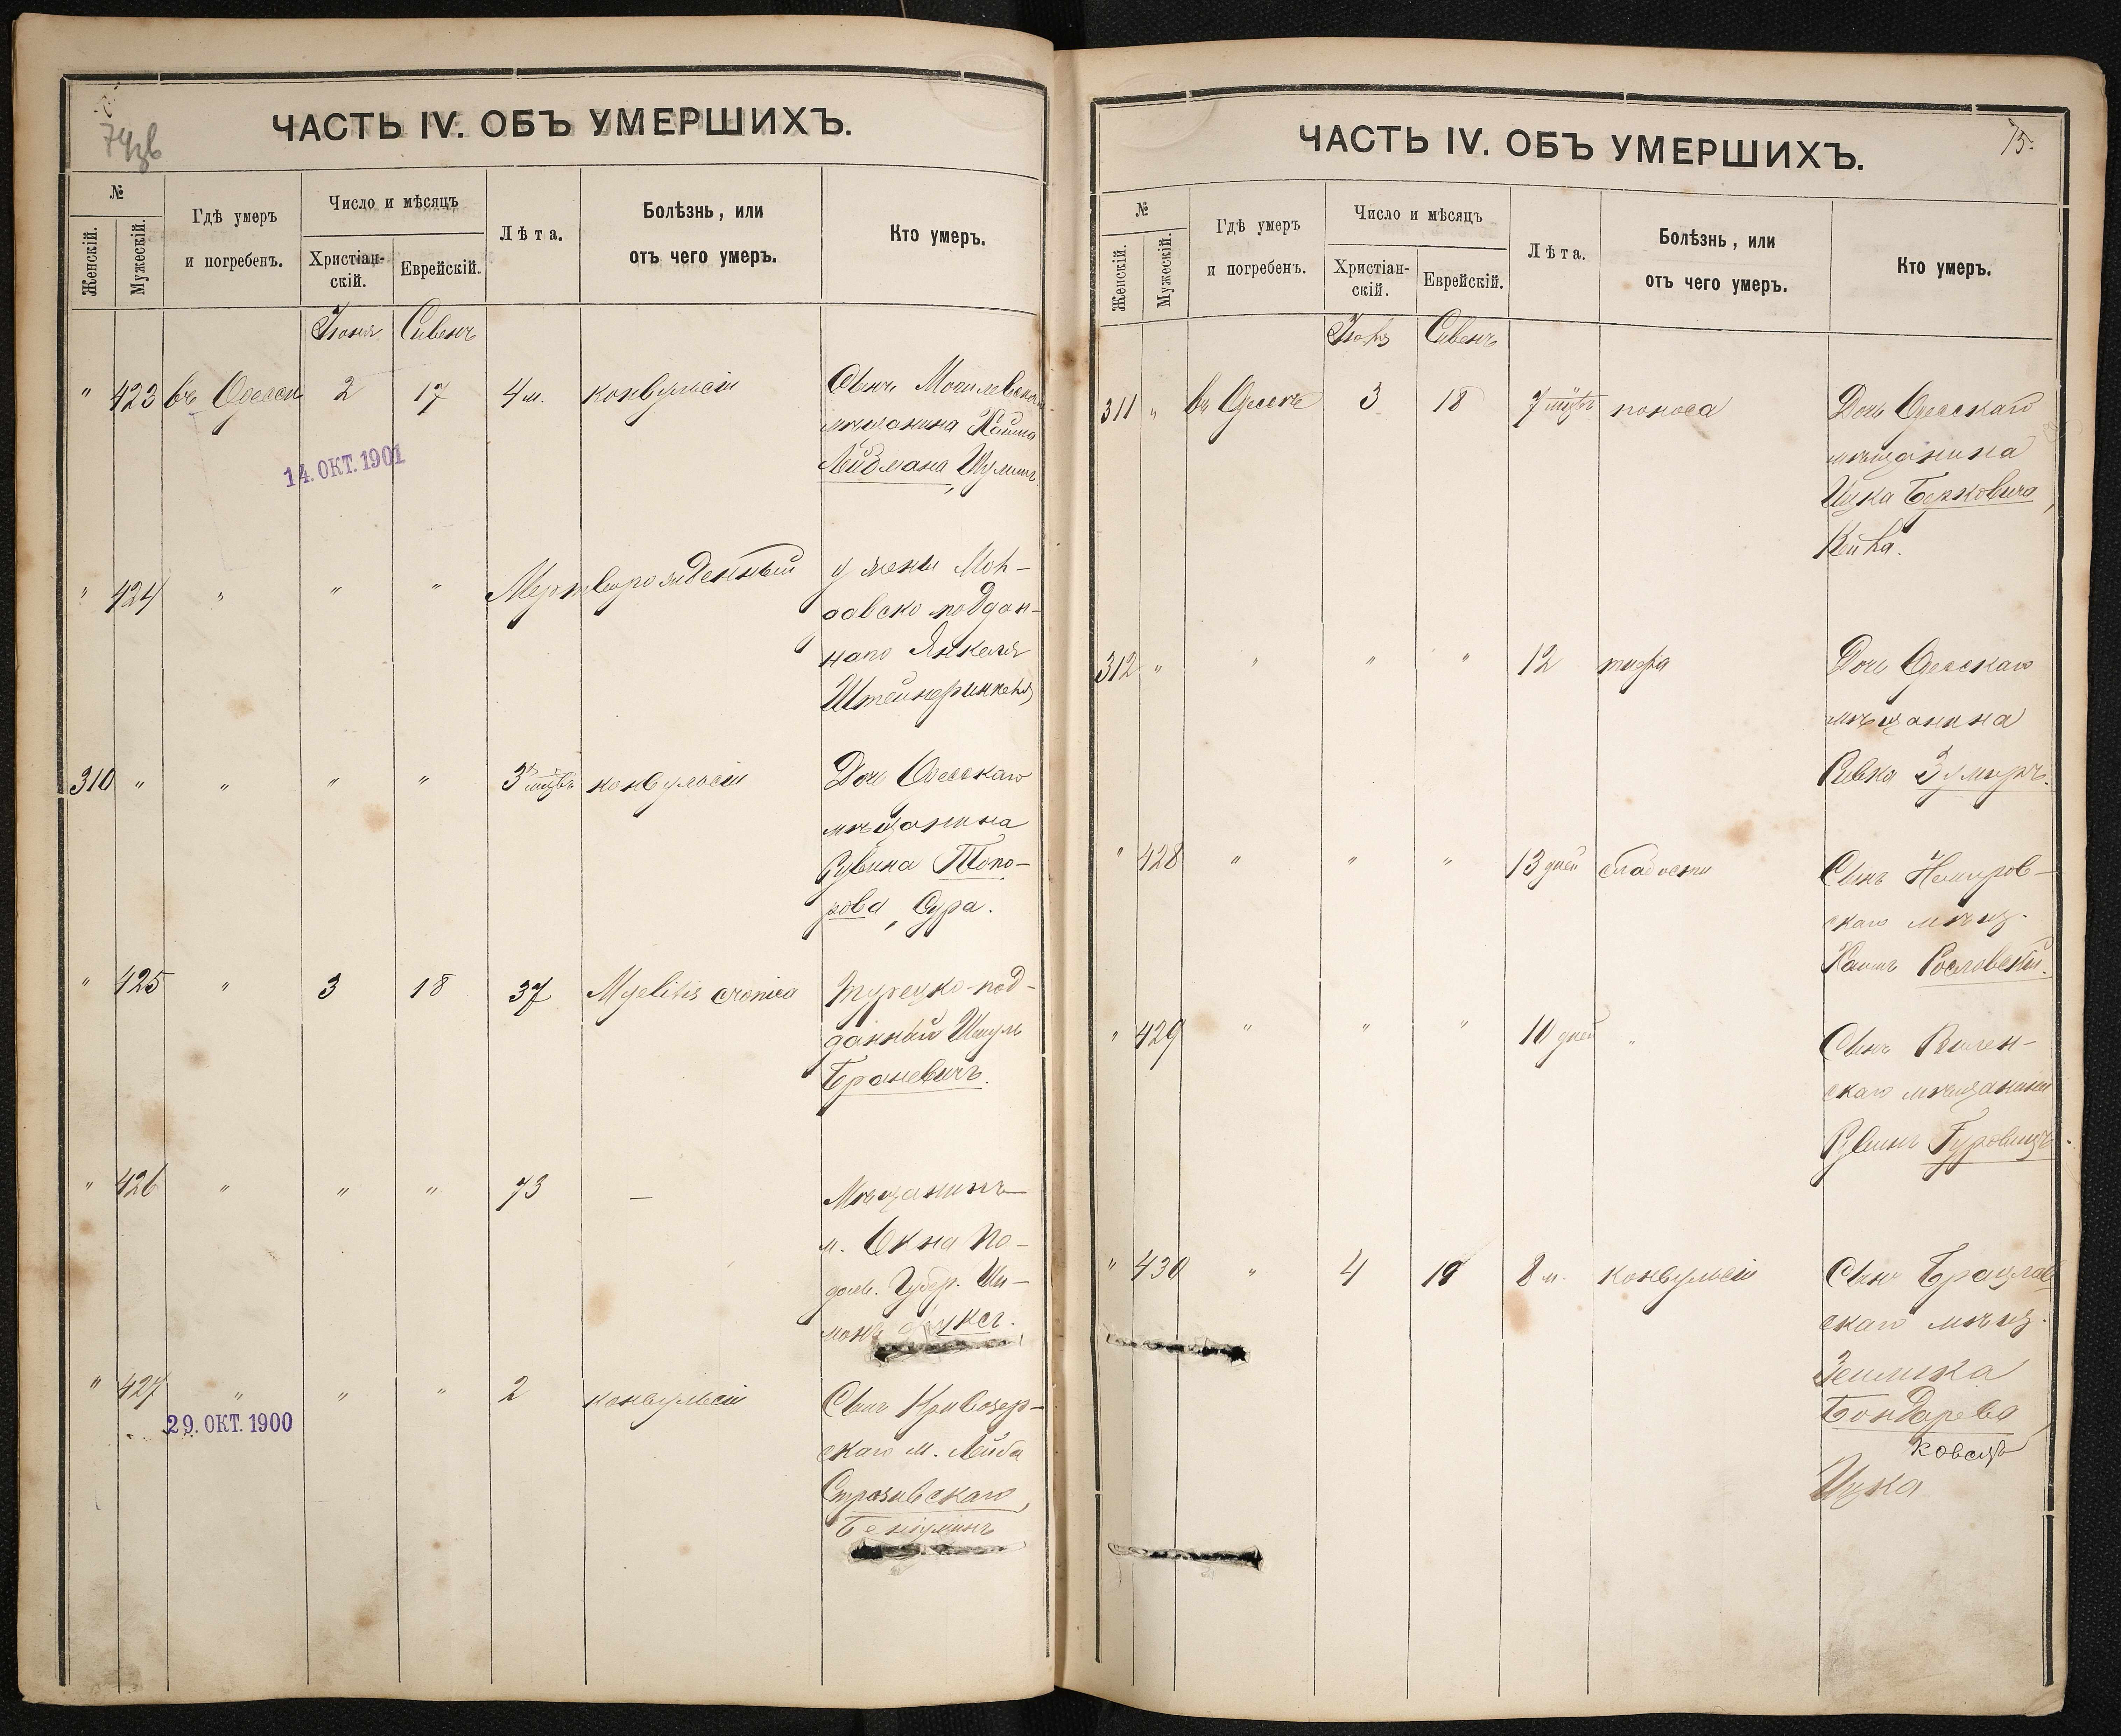 74зв
ЧАСТЬ IV. ОБЪ УМЕРШИХЪ.
№
Женскій.
Мужескій.
Гдѣ умеръ
и погребенъ.
Число и мѣсяцъ
Христіан-
скій.
Еврейскій.
Лѣта.
Болѣзнь, или
отъ чего умеръ.
Кто умеръ.
Іюня Сивенъ
" 423 въ Одессѣ 2 17 4 м. конвульсіи Сынъ Могилевскаго
мѣщанина Хаима
Лейдмана, Шулимъ
14. ОКТ. 1901
" 424 " " " Мертворожденный у жены Мол-
давско поддан-
наго Янкеля
310 " " " " 3 мѣсяц. конвульсіи Дочь Одесскаго
мѣщанина
Рувина Топо-
рова, Сура.
" 425 " 3 18 37 Myelitis cronica Турецко-под-
данный Шмуль
Браневичъ.
" 426 " " " 73 — Мѣщанинъ
м. Окна По-
дольс. Губер. Ши-
монъ
" 427 " " " 2 конвульсіи Сынъ Кривозер-
скаго м. Лейба
29. ОКТ. 1900
Стразовскаго,
Беніуминъ
75.
ЧАСТЬ IV. ОБЪ УМЕРШИХЪ.
№
Женскій.
Мужескій.
Гдѣ умеръ
и погребенъ.
Число и мѣсяцъ
Христіан-
скій.
Еврейскій.
Лѣта.
Болѣзнь, или
отъ чего умеръ.
Кто умеръ.
Іюня Сивенъ
311 " въ Одессѣ 3 18 7 мѣсяц. поноса Дочь Одесскаго
мѣщанина
Ицка Берковича,
312 " " " " 12 тифа Дочь Одесскаго
мѣщанина
Ривка Зумиръ.
" 428 " " " 13 дней слабости Сынъ Немиров-
скаго мѣщ.
Хаимъ Рословскій.
" 429 " " " 10 дней " Сынъ Вилен-
скаго мѣщанина
Рувинъ Гуровицъ.
" 430 " 4 19 8 м. конвульсіи Сынъ Брацлав
скаго мѣщ.
Зельмка
Бондарева,
коваля
Ицка